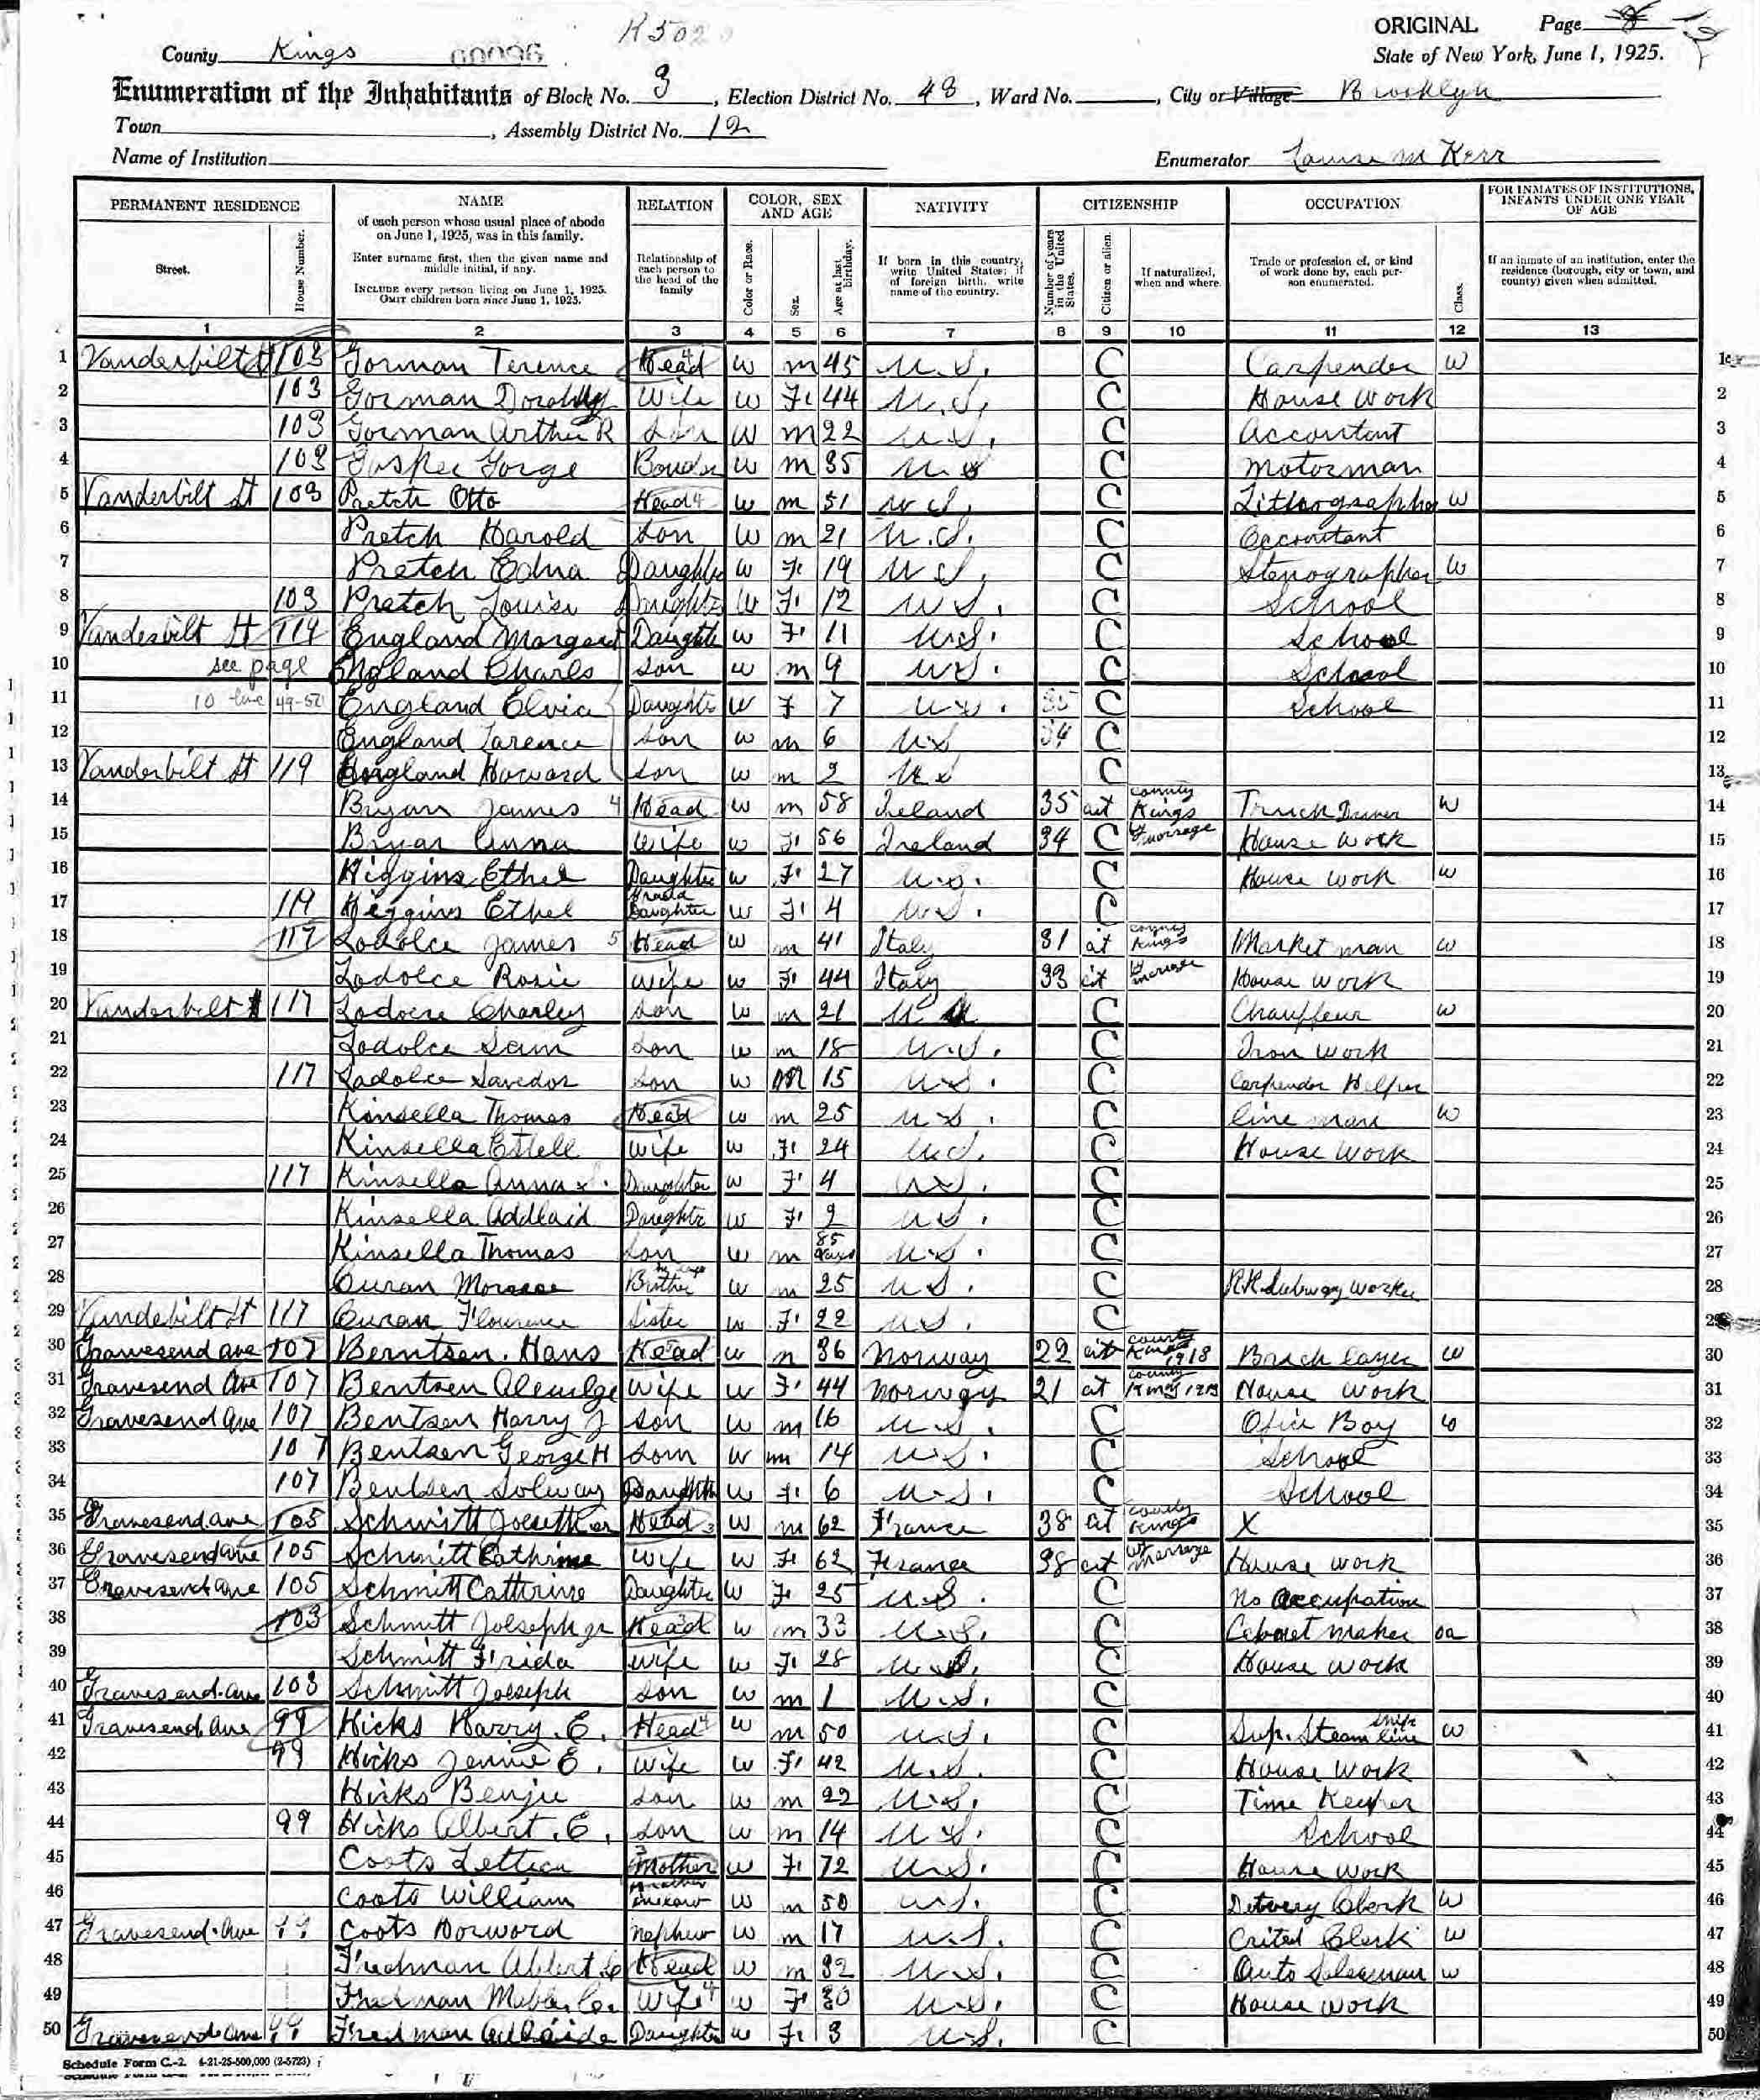 K502
ORIGINAL Page 8
County Kings 00096
State of New York, June 1, 1925.
Enumeration of the Inhabitants of Block No. 3, Election District No. 48, Ward No. , City or Village Brooklyn
Town , Assembly District No. 12
Name of Institution Enumerator Louise M Kerr
PERMANENT RESIDENCE NAME RELATION COLOR, SEX AND AGE NATIVITY CITIZENSHIP OCCUPATION FOR INMATES OF INSTITUTIONS, INFANTS UNDER ONE YEAR OF AGE
Street. House Number.
of each person whose usual place of abode on June 1, 1925, was in this family.
Enter surname first, then the given name and middle initial, if any.
INCLUDE every person living on June 1, 1925. OMIT children born since June 1, 1925.
Relationship of each person to the head of the family
Color or Race. Sex. Age at last birthday.
If born in this country, write United States; if of foreign birth, write name of the country.
Number of years in the United States. Citizen or alien. If naturalized, when and where.
Trade or profession of, or kind of work done by, each person enumerated. Class.
If an inmate of an institution, enter the residence (borough, city or town, and county) given when admitted.
1 2 3 4 5 6 7 8 9 10 11 12 13
1 Vanderbilt St 103 Gorman Terence Head 4 W m 45 U.S. C Carpender W 1
2 103 Gorman Dorothy Wife W F 44 U.S. C House Work 2
3 103 Gorman Arthur R Son W m 22 U.S. C Accontant 3
4 103 Gasper Gorge Bouder W m 35 U.S C Motorman 4
5 Vanderbilt St 103 Pretch Otto Head 4 W m 51 U.S. C Lithographer W 5
6 Pretch Harold Son W m 21 U.S. C Accontant 6
7 Pretch Edna Daughter W F 19 U.S. C Stenographer W 7
8 103 Pretch Louise Daughter W F 12 U.S. C School 8
9 Vanderbilt St 114 England Margaret Daughter W F 11 U.S. C School 9
10 see page England Charls Son W m 9 U.S. C School 10
11 10 line 49-50 England Elvia Daughter W F 7 U.S. 35 C School 11
12 England Tarence Son W m 6 U.S 34 C 12
13 Vanderbilt St 119 England Howard Son W m 2 U.S C 13
14 Bryan James 4 Head W m 58 Ireland 35 cit county Kings Truck Driver W 14
15 Bryan Anna Wife W F 56 Ireland 34 C Marriage House Work 15
16 Higgins Ethel Daughter W F 27 U.S. C House Work W 16
17 119 Higgins Ethel Grand Daughter W F 4 U.S. C 17
18 117 Lodolce James 5 Head W m 41 Italy 31 cit county Kings Market man W 18
19 Lodolce Rosie Wife W F 44 Italy 33 cit Marriage House Work 19
20 Vanderbilt St 117 Lodolce Charley Son W m 21 U.S C Chauffeur W 20
21 Lodolce Sam Son W m 18 U.S. C Iron Work 21
22 117 Ladolce Savedor Son W M 15 U.S. C Carpender Helper 22
23 Kinsella Thomas Head W m 25 U.S. C line man W 23
24 Kinsella Estell Wife W F 24 U.S. C House Work 24
25 117 Kinsella Anna Daughter W F 4 U.S. C 25
26 Kinsella Addlaid Daughter W F 2 U.S. C 26
27 Kinsella Thomas Son W m 85 days U.S. C 27
28 Curan Brother W m 25 U.S. C RR Subway Worker 28
29 Vandebilt St 117 Curan Flourence Sister W F 22 U.S. C 29
30 Gravesend Ave 107 Berntsen. Hans Head W m 36 Norway 22 cit county Kings 1918 Brick layer W 30
31 Gravesend Ave 107 Bentsen Wife W F 44 Norwgy 21 cit county Kings 1918 House Work 31
32 Gravesend Ave 107 Bentsen Harry J Son W m 16 U.S. C Ofice Boy W 32
33 107 Bentsen George H Son W m 14 U.S. C School 33
34 107 Bentsen Solway Daughter W F 6 U.S. C School 34
35 Gravesend Ave 105 Schmitt Head 3 W m 62 France 38 cit county Kings X 35
36 Gravesend Ave 105 Schmitt Cathrine Wife W F 62 France 38 cit Marriage House Work 36
37 Gravesend Ave 105 Schmitt Catherine Daughter W F 25 U.S. C No Occupation 37
38 103 Schmitt Joeseph jr Head W m 33 U.S. C Cabnet Maker oa 38
39 Schmitt Frida Wife W F 28 U.S. C House Work 39
40 Gravesend Ave 103 Schmitt Joeseph Son W m 1 U.S. C 40
41 Gravesend Ave 99 Hicks Harry. E. Head 4 W m 50 U.S. C Sup. Steam Ship line W 41
42 99 Hicks Jennie E. Wife W F 42 U.S. C House Work 42
43 Hicks Benjie Son W m 22 U.S. C Time Keeper 43
44 99 Hicks Albert. E. Son W m 14 U.S. C School 44
45 Coots Lettica Mother W F 72 U.S. C House Work 45
46 Coots William W m 50 U.S. C Clerk W 46
47 Gravesend Ave 99 Coots Norword Nephew W m 17 U.S. C Clerk W 47
48 Fredman Albert Head W m 32 U.S. C Auto Salesman W 48
49 Fredman Wife 4 W F 30 U.S. C House Work 49
50 Gravesend Ave 99 Fredman Adlaide Daughter W F 3 U.S. C 50
Schedule Form C-2. 4-21-25-500,000 (2-5723)